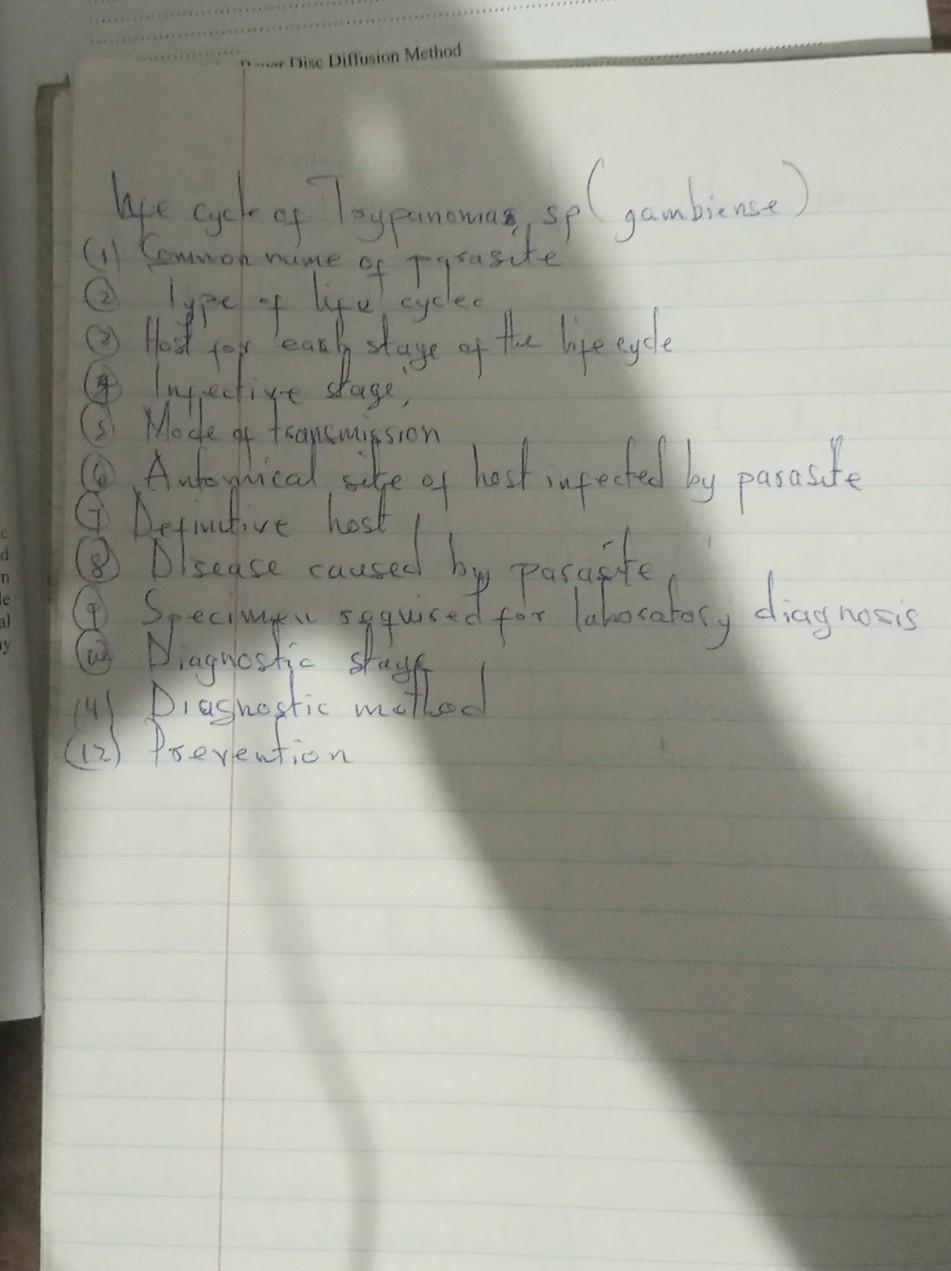 Disc Diffusion Method
life cycle of Trypanomas, sp (gambiense)
(1) Common name of parasite
(2) Type of life cycle
(3) Host for each stage of the life cycle
(4) Infective stage,
(5) Mode of transmission
(6) Antomical site of host infected by parasite
(7) Definitive host
(8) Disease caused by parasite
(9) Specimen required for laboratory diagnosis
(10) Diagnostic stage
(11) Diagnostic method
(12) Prevention